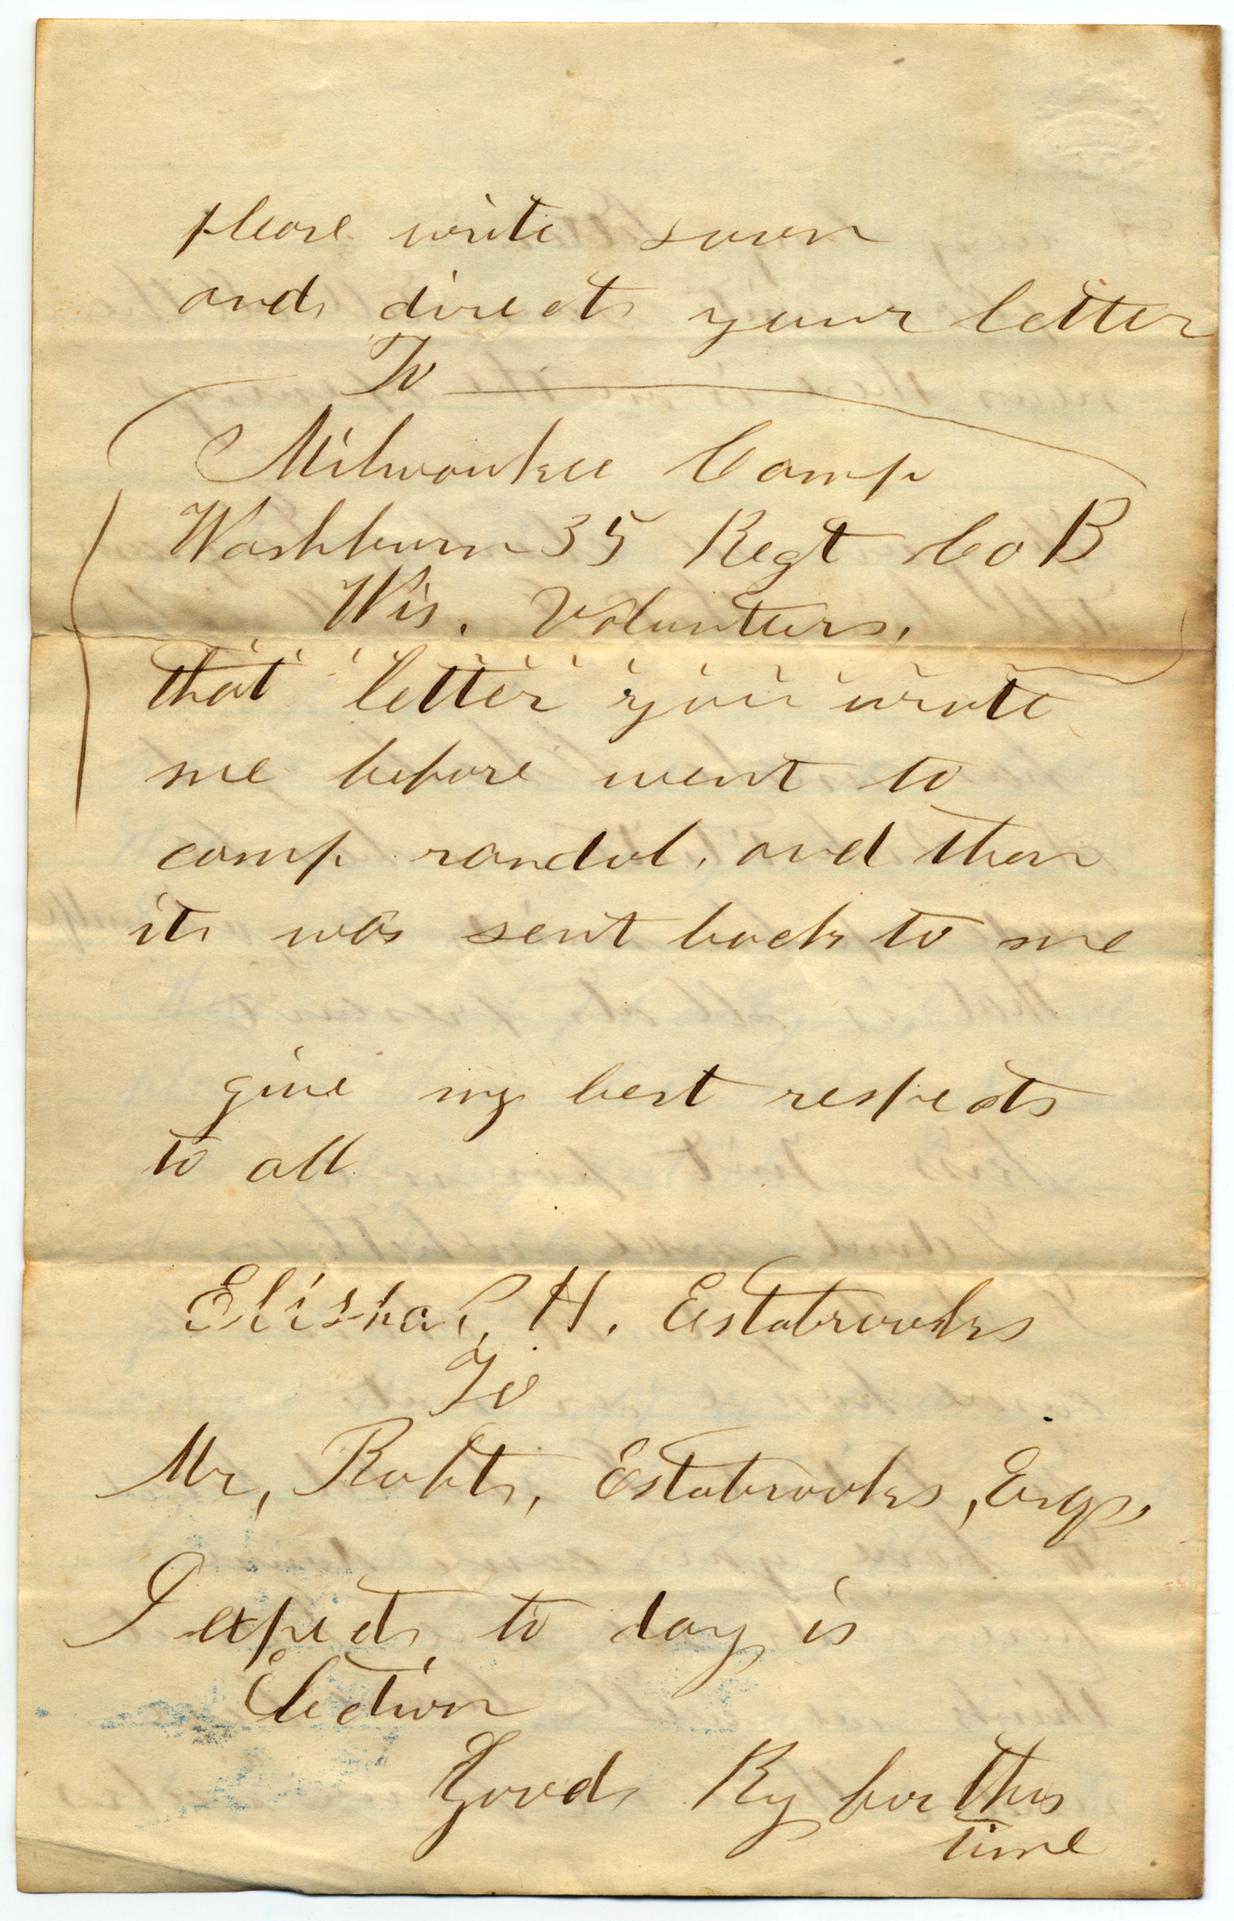 please write soon
and direct your letter
To
Milwaukee Camp
Washburn 35 Regt Co B
Wis. Volunteers.
that letter you wrote
me before went to
camp randol. and then
it was sent back to me
give my best respects
to all
Elisha P. H. Estabrooks
To
Mr, Robt, Estabrooks, Esq,
I expect to day is
Election
Good By for this
time